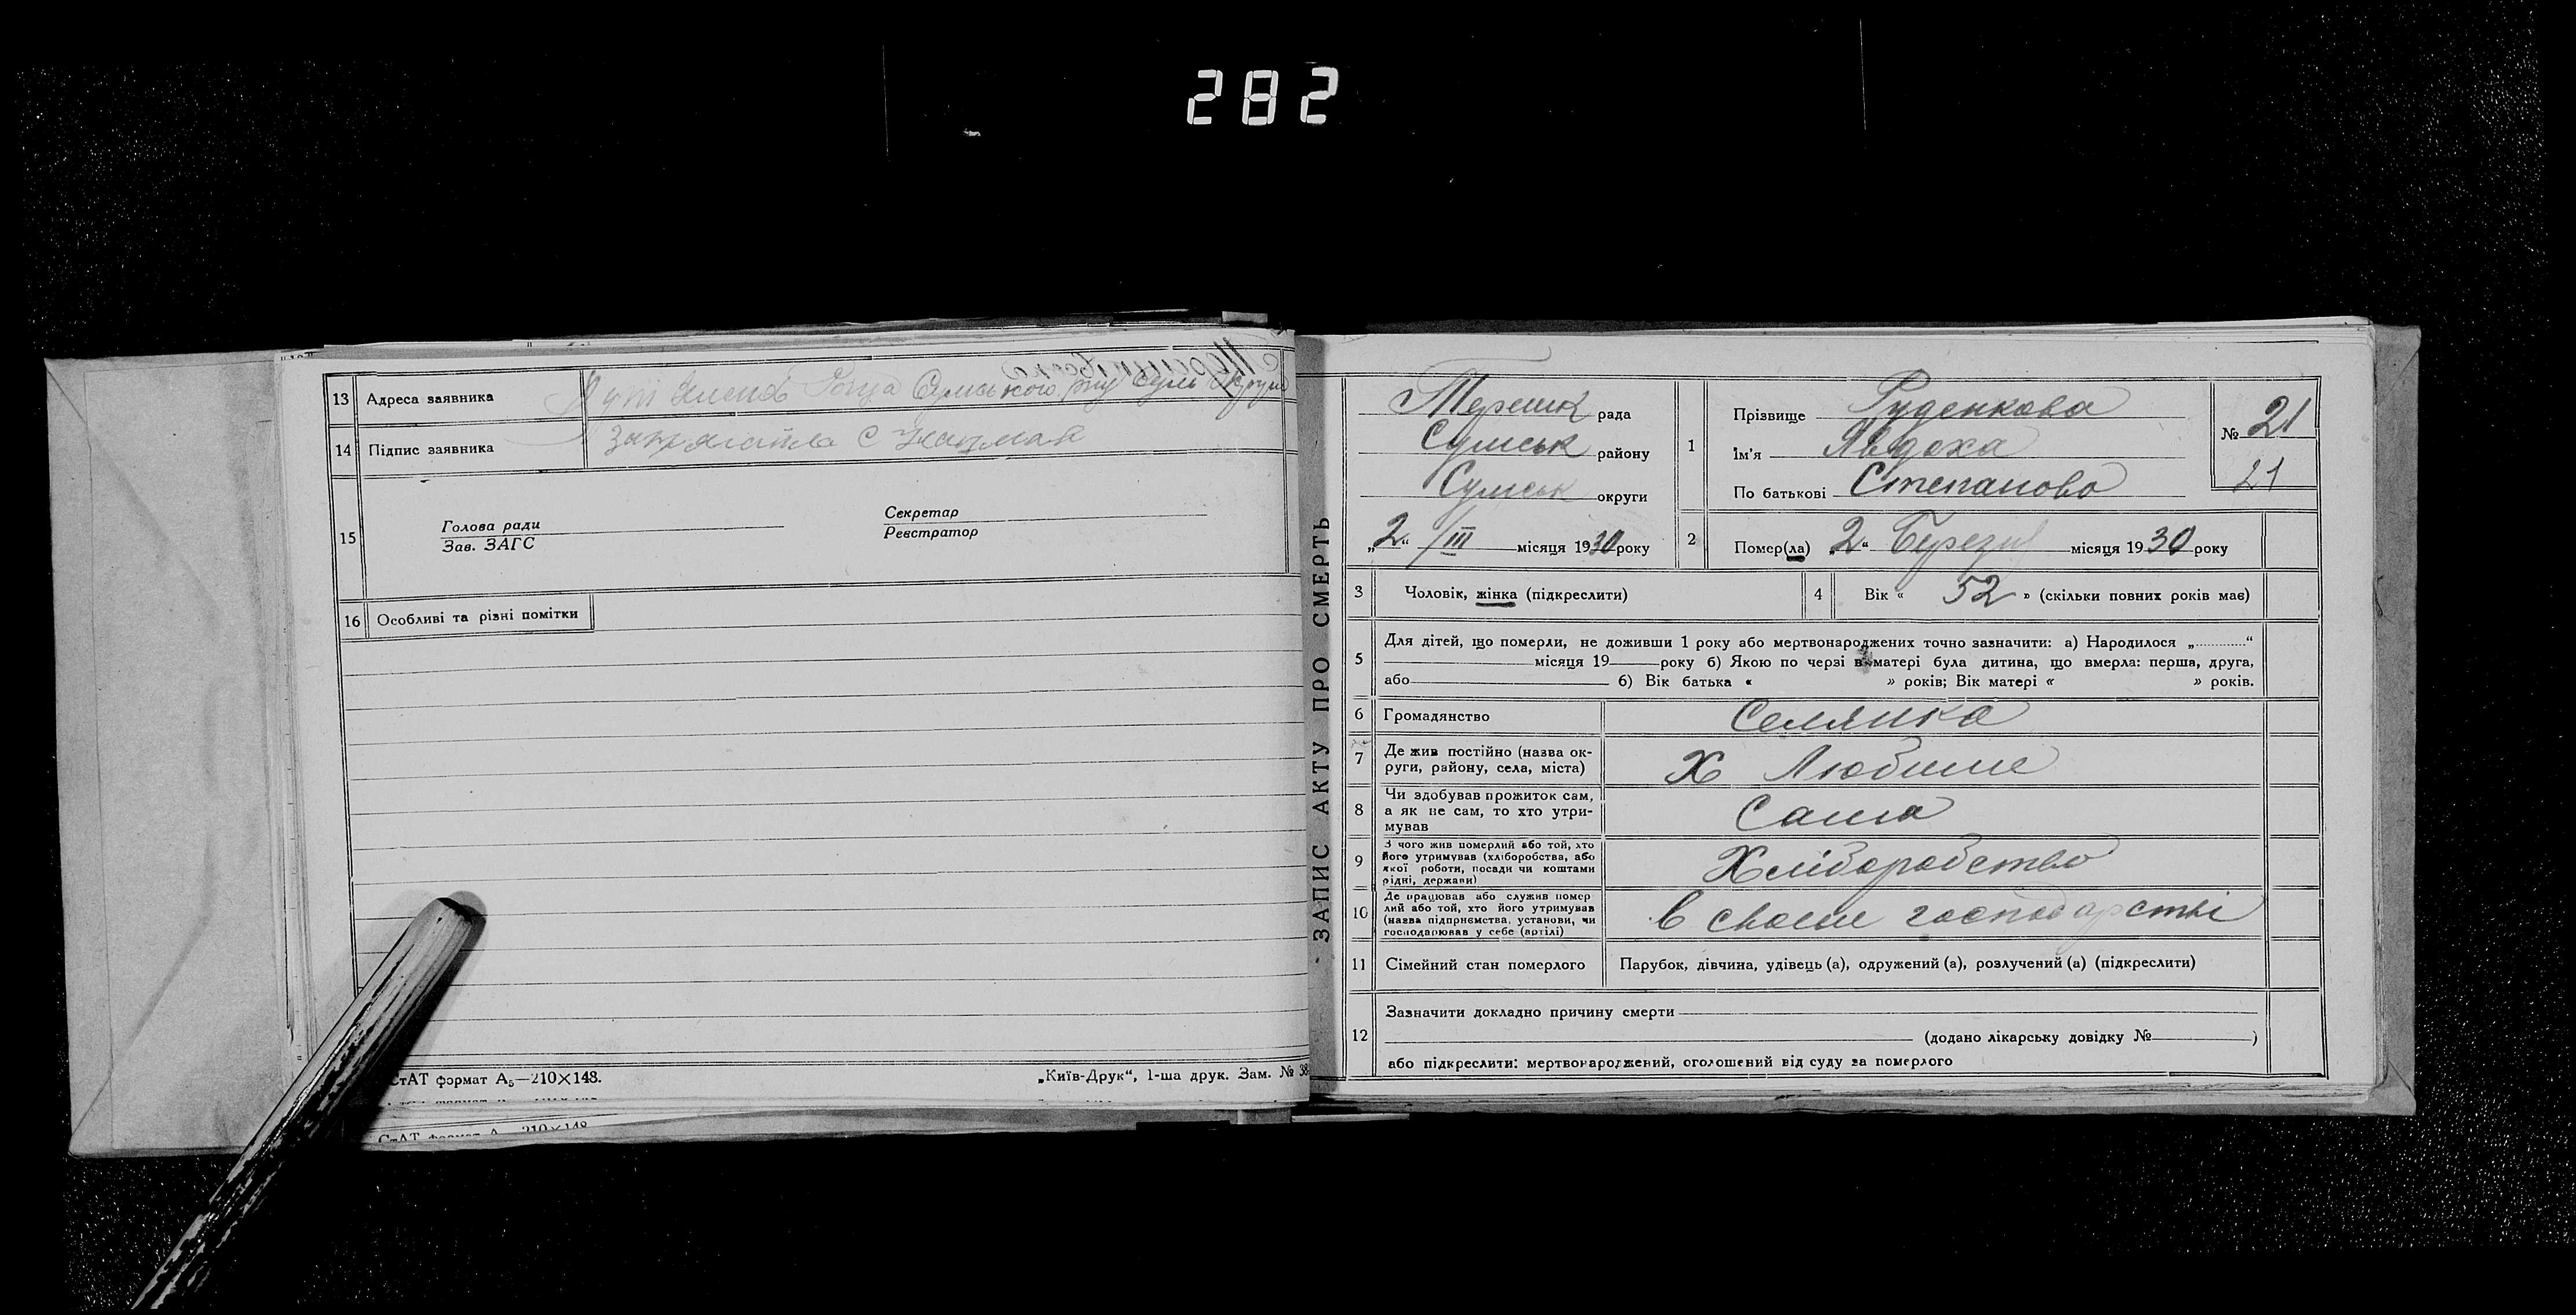 282
13 Адреса заявника Сумського
14 Підпис заявника
15 Голова ради Секретар
Зав. ЗАГС Реєстратор
16 Особливі та різні помітки
СтАТ формат А₅—210×148.
„Київ-Друк“, 1-ша друк. Зам. № 38
СтАТ формат А 210×148
ЗАПИС АКТУ ПРО СМЕРТЬ
Терешк рада
Сумськ району
Сумськ округи
„2“ /III місяця 1930 року
1 Прізвище Руденкова
Ім'я Явдоха
По батькові Степанова
№ 21
21
2 Помер(ла) „2“ Березня місяця 1930 року
3 Чоловік, жінка (підкреслити)
4 Вік « 52 » (скільки повних років має)
5 Для дітей, що померли, не доживши 1 року або мертвонароджених точно зазначити: а) Народилося „ “
місяця 19 року б) Якою по черзі в матері була дитина, що вмерла: перша, друга,
або б) Вік батька « » років; Вік матері « » років.
6 Громадянство Селянка
7 Де жив постійно (назва ок-
руги, району, села, міста) Х Любиме
8 Чи здобував прожиток сам,
а як не сам, то хто утри-
мував Сама
9 З чого жив померлий або той, хто
його утримував (хліборобства, або
якої роботи, посади чи коштами
рідні, держави) Хліборобство
10 Де працював або служив помер
лий або той, хто його утримував
(назва підприємства, установи, чи
господарював у себе (артілі) в своєм господарстві
11 Сімейний стан померлого Парубок, дівчина, удівець (а), одружений (а), розлучений (а) (підкреслити)
12 Зазначити докладно причину смерти
(додано лікарську довідку № )
або підкреслити: мертвонароджений, оголошений від суду за померлого